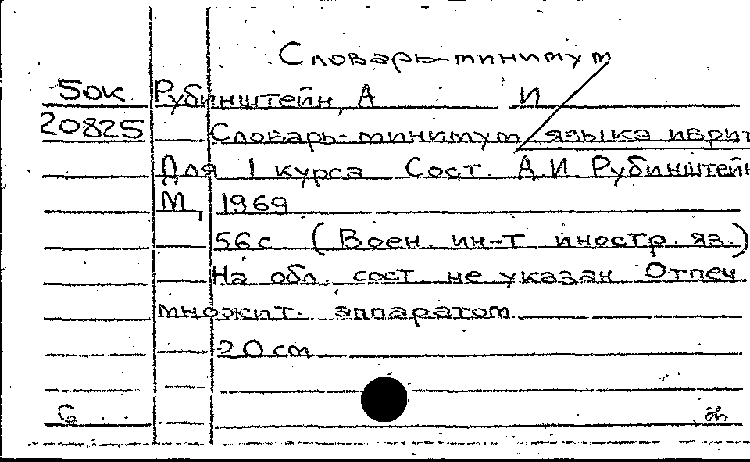 Словарь-минимум
5ок Рубинштейн, А И
20825 Словарь-минимум языка иврит
Для 1 курса Сост. А.И. Рубинштейн
М, 1969
56с (Воен. ин-т иностр. яз.)
На обл. сост не указан Отпеч
множит. аппаратом
20 см